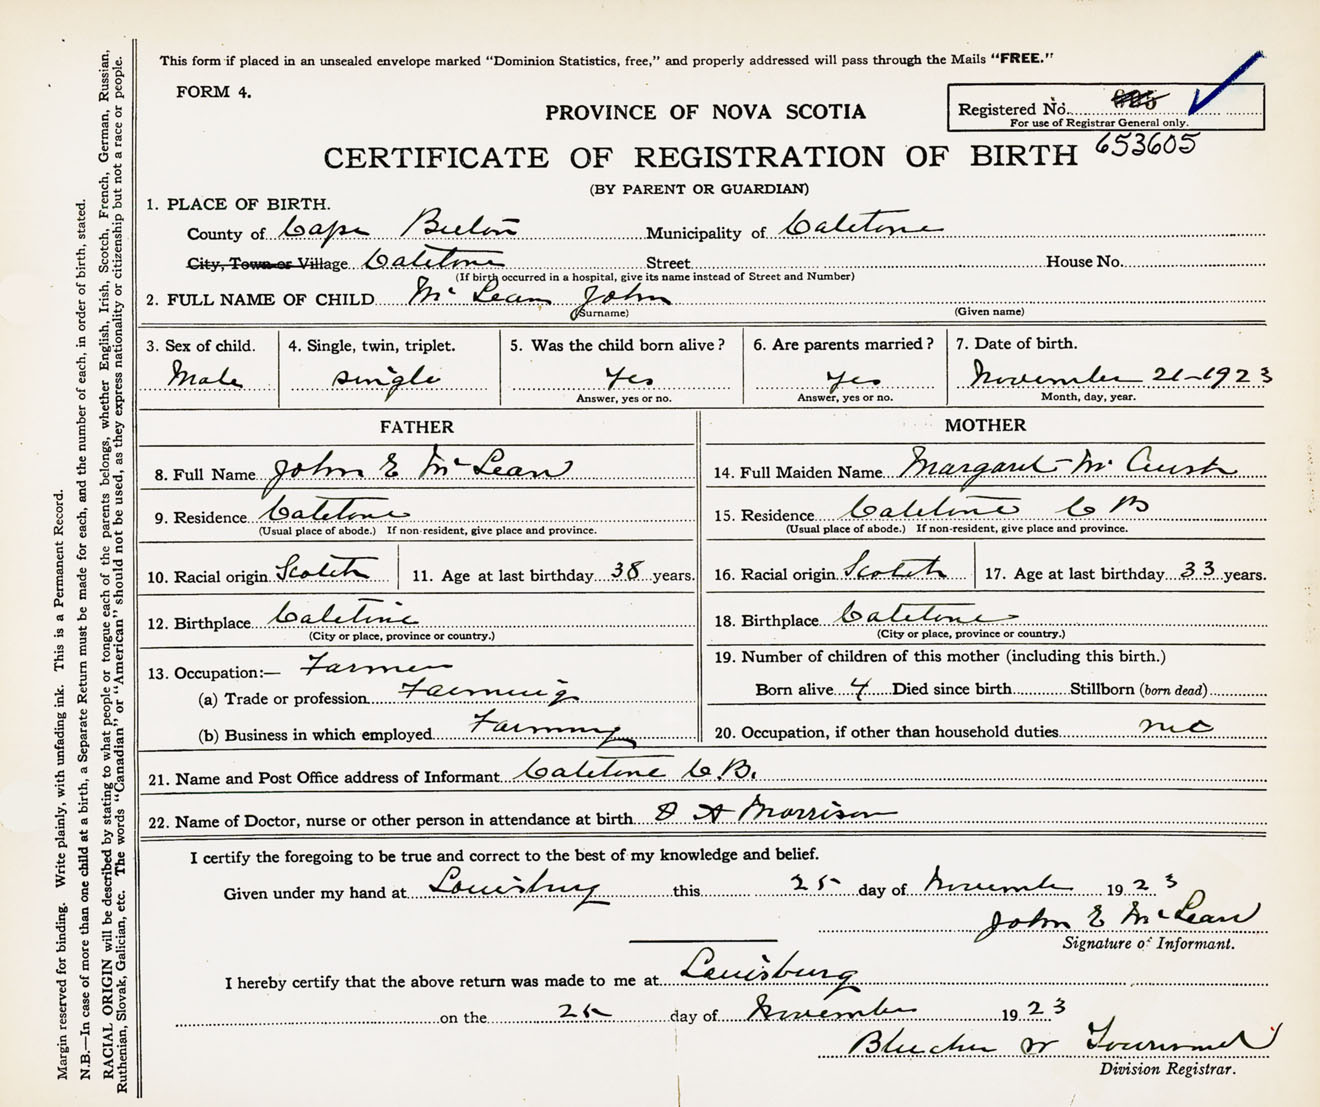 This form if placed in an unsealed envelope marked "Dominion Statistics, free," and properly addressed will pass through the Mails "FREE."
FORM 4.
PROVINCE OF NOVA SCOTIA
Registered No.
For use of Registrar General only.
653605
CERTIFICATE OF REGISTRATION OF BIRTH
(BY PARENT OR GUARDIAN)
1. PLACE OF BIRTH.
County of Cape Breton Municipality of Catetone
City, Town or Village Catetone Street House No.
(If birth occurred in a hospital, give its name instead of Street and Number)
2. FULL NAME OF CHILD McLean John
(Surname) (Given name)
3. Sex of child. 4. Single, twin, triplet. 5. Was the child born alive? 6. Are parents married? 7. Date of birth.
Male single Yes yes November 21-1923
Answer, yes or no. Answer, yes or no. Month, day, year.
FATHER MOTHER
8. Full Name John E McLean 14. Full Maiden Name Margaret Mc
9. Residence Catetone 15. Residence Catetone C B
(Usual place of abode.) If non-resident, give place and province. (Usual place of abode.) If non-resident, give place and province.
10. Racial origin Scotch 11. Age at last birthday 38 years. 16. Racial origin Scotch 17. Age at last birthday 33 years.
12. Birthplace Catetone 18. Birthplace Catetone
(City or place, province or country.) (City or place, province or country.)
13. Occupation:— Farmer 19. Number of children of this mother (including this birth.)
(a) Trade or profession Farming Born alive 4 Died since birth Stillborn (born dead)
(b) Business in which employed Farming 20. Occupation, if other than household duties
21. Name and Post Office address of Informant Catetone C.B.
22. Name of Doctor, nurse or other person in attendance at birth D A Morrison
I certify the foregoing to be true and correct to the best of my knowledge and belief.
Given under my hand at Louisburg this 25 day of November 1923
John E McLean
Signature of Informant.
I hereby certify that the above return was made to me at Louisburg
on the 25 day of November 1923
W
Division Registrar.
Margin reserved for binding. Write plainly, with unfading ink. This is a Permanent Record.
N.B.—In case of more than one child at a birth, a Separate Return must be made for each, and the number of each, in order of birth, stated.
RACIAL ORIGIN will be described by stating to what people or tongue each of the parents belongs, whether English, Irish, Scotch, French, German, Russian,
Ruthenian, Slovak, Galician, etc. The words "Canadian" or "American" should not be used, as they express nationality or citizenship but not a race or people.